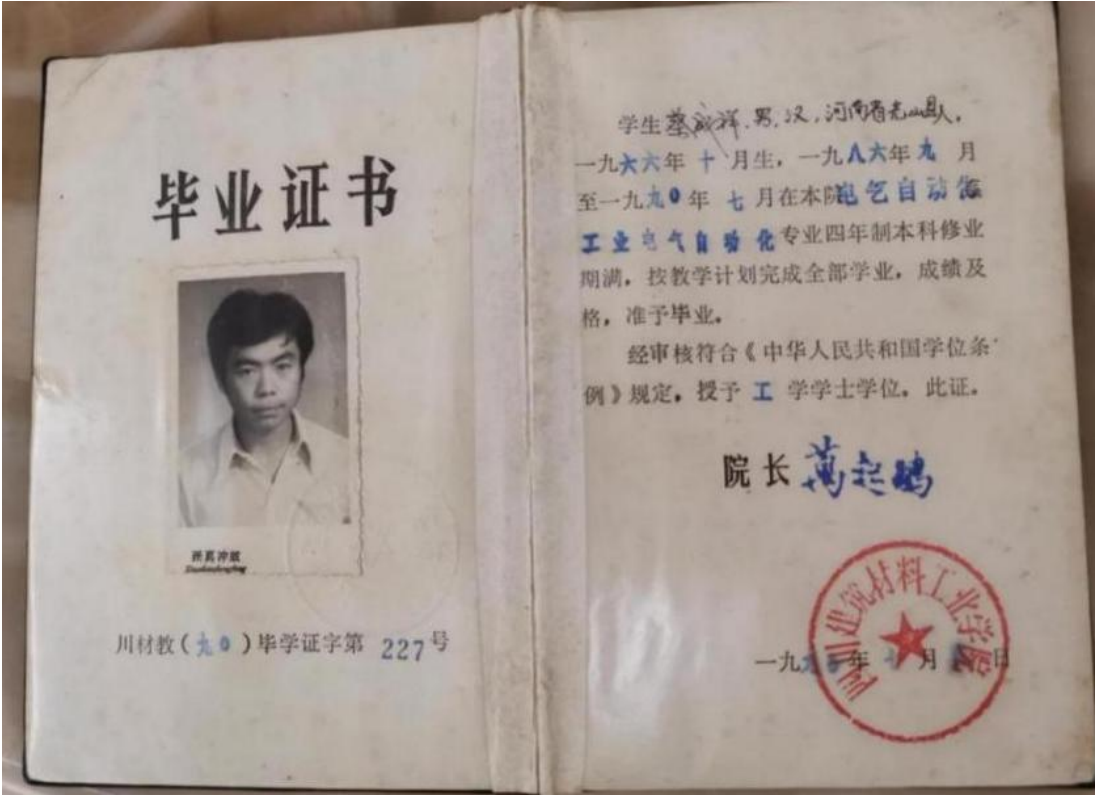 毕业证书
川材教(九0)毕学证字第 227号
学生蔡成祥,男,汉,河南省光山县人,
一九六六年十月生,一九八六年九月
至一九九0年七月在本院电气自动化
工业电气自动化专业四年制本科修业
期满,按教学计划完成全部学业,成绩及
格,准予毕业。
经审核符合《中华人民共和国学位条
例》规定,授予 工 学学士学位。此证。
院长
四川建筑材料工业学院
一九 年 月 日